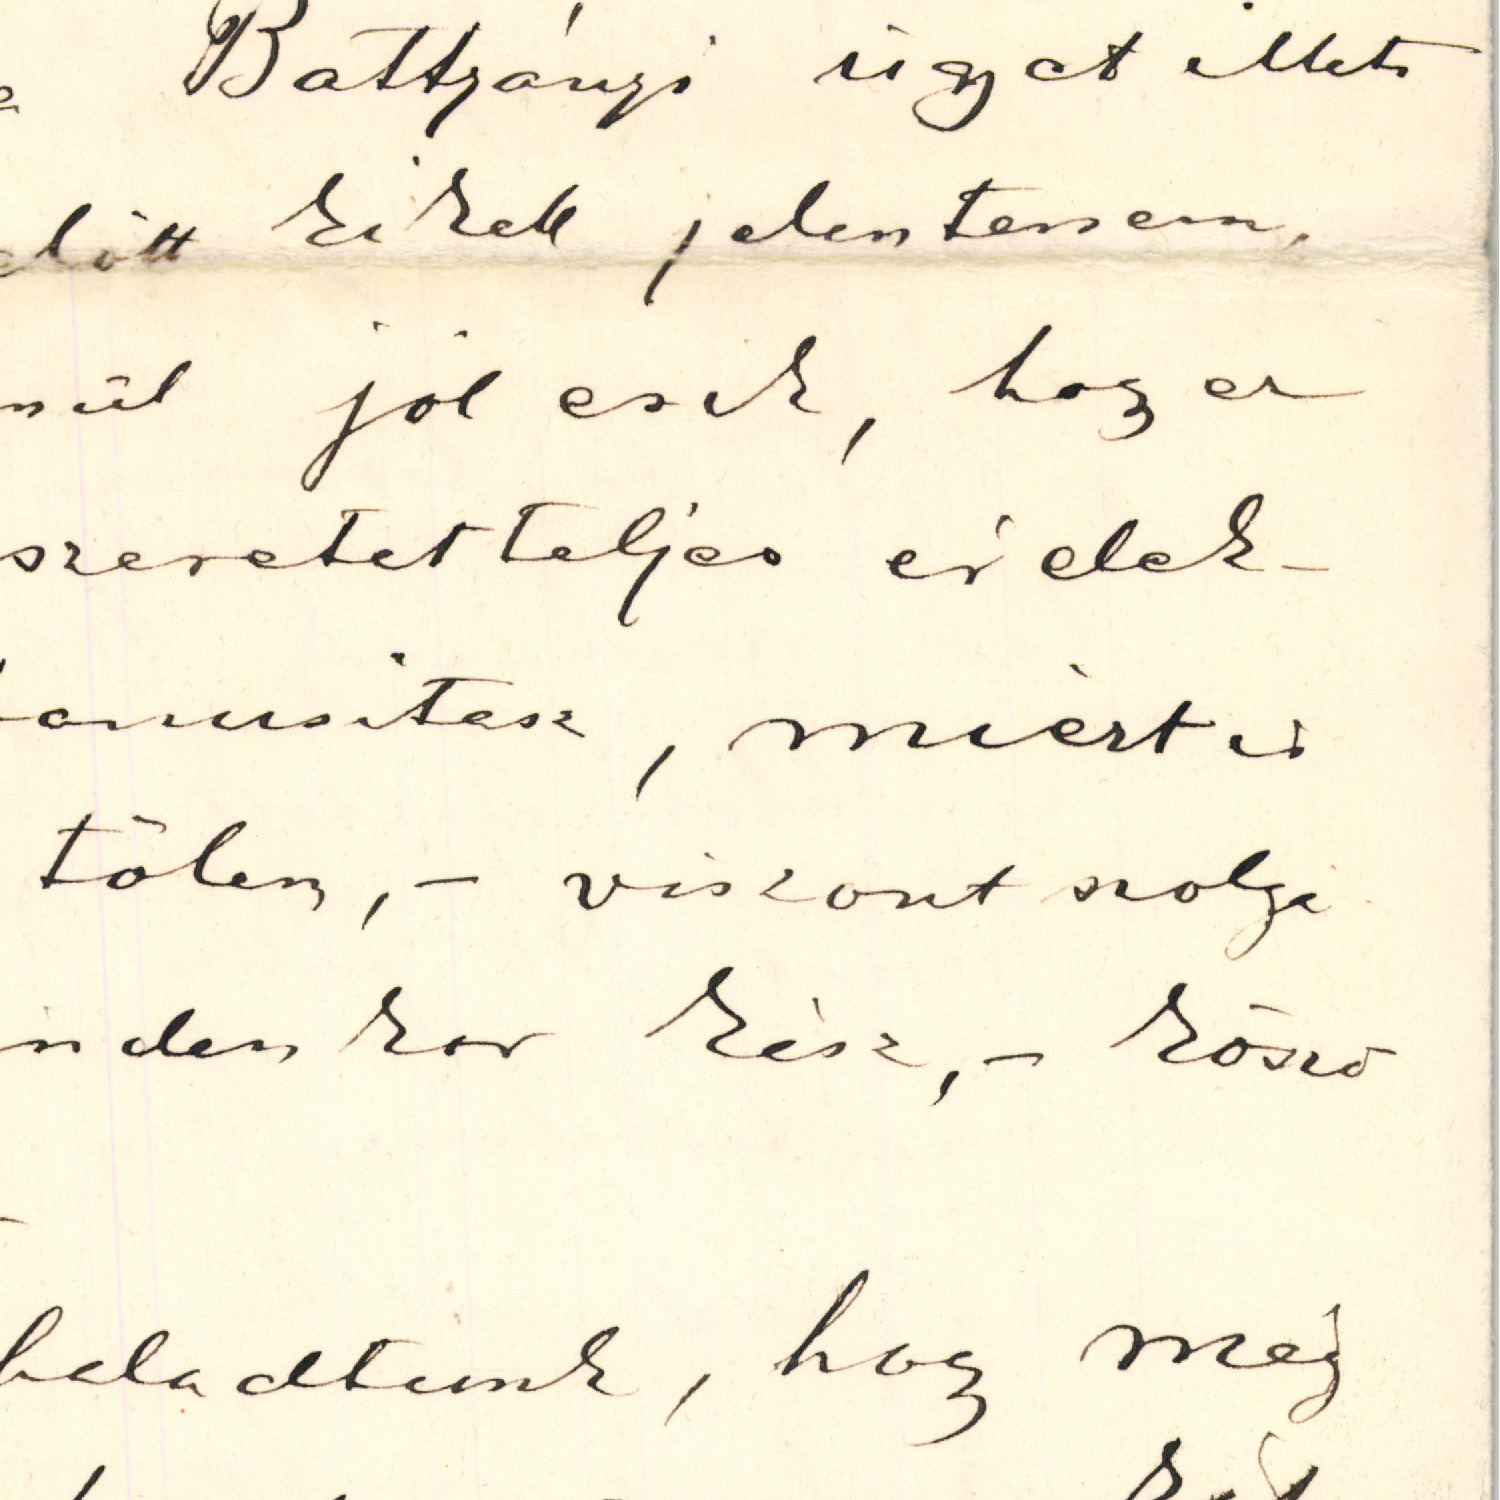 a Batthyányi ügyet illető
előtt ki kell jelentenem,
nül jól esik, hogy ez
szeretetteljes érdek-
tanusitasz, miért is
tőlem,- viszont szolgá
indenkor kész,- köszö
haladtunk, hogy még
két